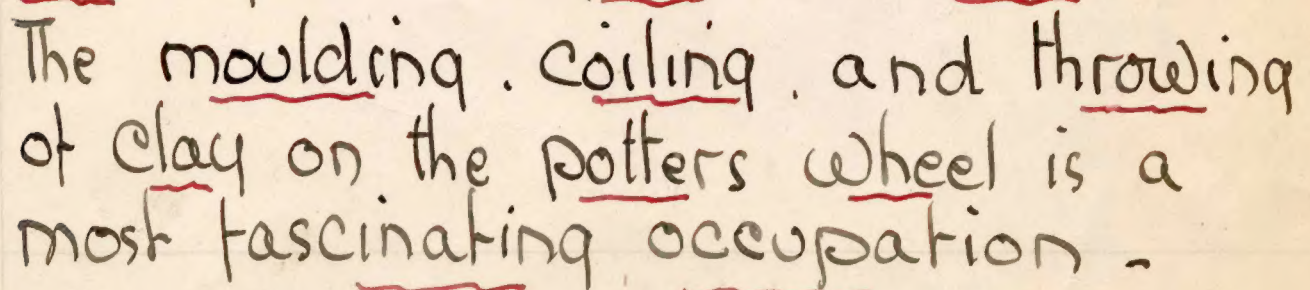 The moulding. coiling. and throwing
of clay on the potters wheel is a
most fascinating occupation.